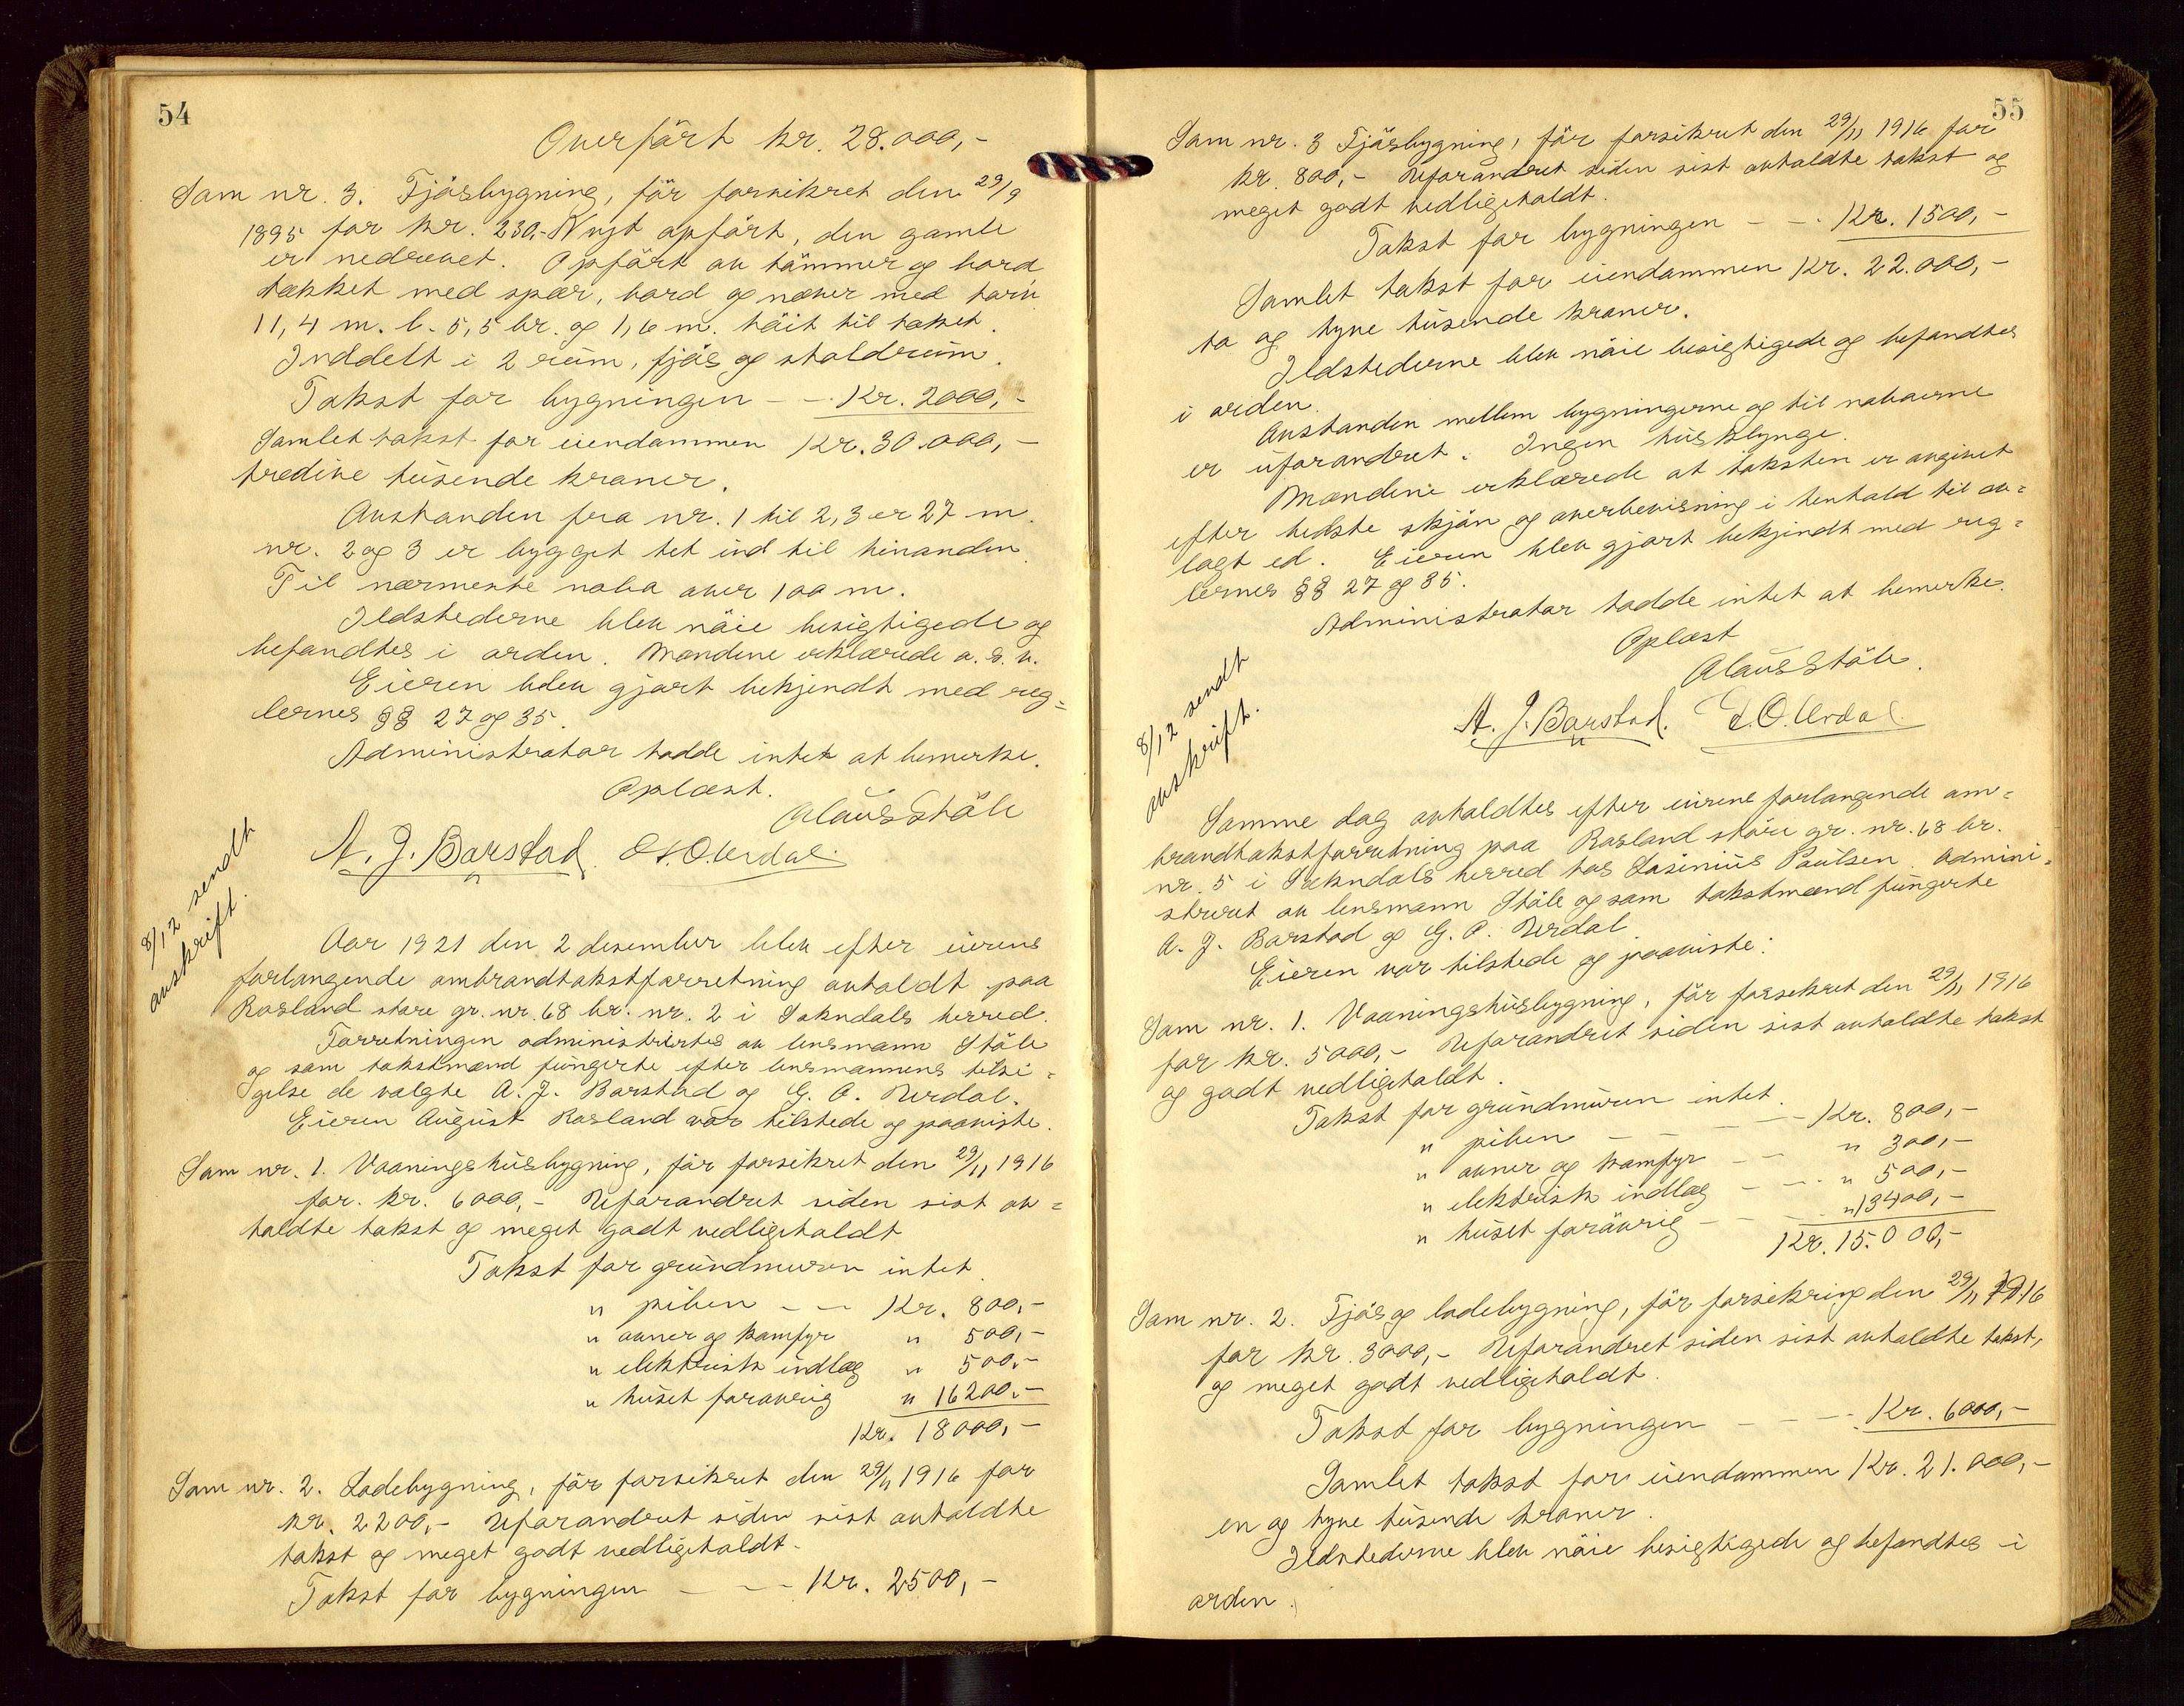 54
Overført kr. 28.000,-
Som nr. 3. Fjøsbygning, før forsikret den 29/9
1895 for kr. 230,- Nyt opført, den gamle
er nedrevet. Opført av tømmer og bord
tækket med spær, bord og næver med torv
11,4 m. l. 5,5 br. og 1,6 m. høit til taket.
Inddelt i 2 rum, fjøs og staldrum.
Takst for bygningen - - Kr. 2000,-
Samlet takst for eiendommen Kr. 30.000,-
tredive tusende kroner.
Avstanden fra nr. 1 til 2, 3 er 27 m.
nr. 2 og 3 er bygget tet ind til hinanden.
Til nærmeste nabo over 100 m.
Ildstederne blev nøie besigtigede og
befandtes i orden. Mændene erklærede o. s. v.
Eieren blev gjort bekjendt med reg=
lernes §§ 27 og 35.
Administrator hadde intet at bemerke.
Oplæst.
Claus Ståle
A. J. Barstad G. O. Urdal.
8/12 sendt
avskrift.
Aar 1921 den 2 desember blev efter eierens
forlangende ombrandtakstforretning avholdt paa
Rosland store gr. nr. 68 br. nr. 2 i Sokndals herred.
Forretningen administrertes av lensmann Ståle
og som takstmænd fungerte efter lensmannens tilsi=
gelse de valgte A. J. Barstad og G. O. Urdal.
Eieren August Rosland var tilstede og paaviste.
Som nr. 1. Vaaningshusbygning, før forsikret den 29/11 1916
for kr. 6000,- Uforandret siden sist av=
holdte takst og meget godt vedligeholdt
Takst for grundmuren intet.
" piben - - Kr. 800,-
" ovner og komfyr " 500,-
" elektrisk indlæg " 500,-
" huset forøvrig " 16200,-
Kr. 18000,-
Som nr. 2. Ladebygning, før forsikret den 29/11 1916 for
kr. 2200,- Uforandret siden sist avholdte
takst og meget godt vedligeholdt.
Takst for bygningen - - - Kr. 2500,-
55
Som nr. 3 Fjøsbygning, før forsikret den 29/11 1916 for
kr. 800,- Uforandret siden sist avholdte takst og
meget godt vedligeholdt.
Takst for bygningen - - Kr. 1500,-
Samlet takst for eiendommen Kr. 22.000,-
to og tyve tusende kroner.
Ildstederne blev nøie besigtigede og befandtes
i orden.
Avstanden mellem bygningerne og til naboerne
er uforandret. Ingen husklynge.
Mændene erklærede at taksten er avgivet
efter bedste skjøn og overbevisning i henhold til av=
lagt ed. Eieren blev gjort bekjendt med reg=
lernes §§ 27 og 35.
Administrator hadde intet at bemerke.
Oplæst
Claus Ståle.
A. J. Barstad. G. O. Urdal
8/12 sendt
avskrift.
Samme dag avholdtes efter eierens forlangende om=
brandtakstforretning paa Rosland store gr. nr. 68 br.
nr. 5 i Sokndals herred hos Lasinius Paulsen. Admini=
streret av lensmann Ståle og som takstmænd fungerte
A. J. Barstad og G. O. Urdal
Eieren var tilstede og paaviste:
Som nr. 1. Vaaningshusbygning, før forsikret den 29/11 1916
for kr. 5000,- Uforandret siden sist avholdte takst
og godt vedligeholdt.
Takst for grundmuren intet.
" piben - - - - Kr. 800,-
" ovner og komfyr - - " 300,-
" elektrisk indlæg - - - " 500,-
" huset forøvrig - - - " 13400,-
Kr. 15.000,-
Som nr. 2. Fjøs og ladebygning, før forsikring den 29/11 1916
for kr. 3000,- Uforandret siden sist avholdte takst,
og meget godt vedligeholdt.
Takst for bygningen - - - Kr. 6000,-
Samlet takst for eiendommen Kr. 21.000,-
en og tyve tusende kroner.
Ildstederne blev nøie besigtigede og befandtes i
orden.